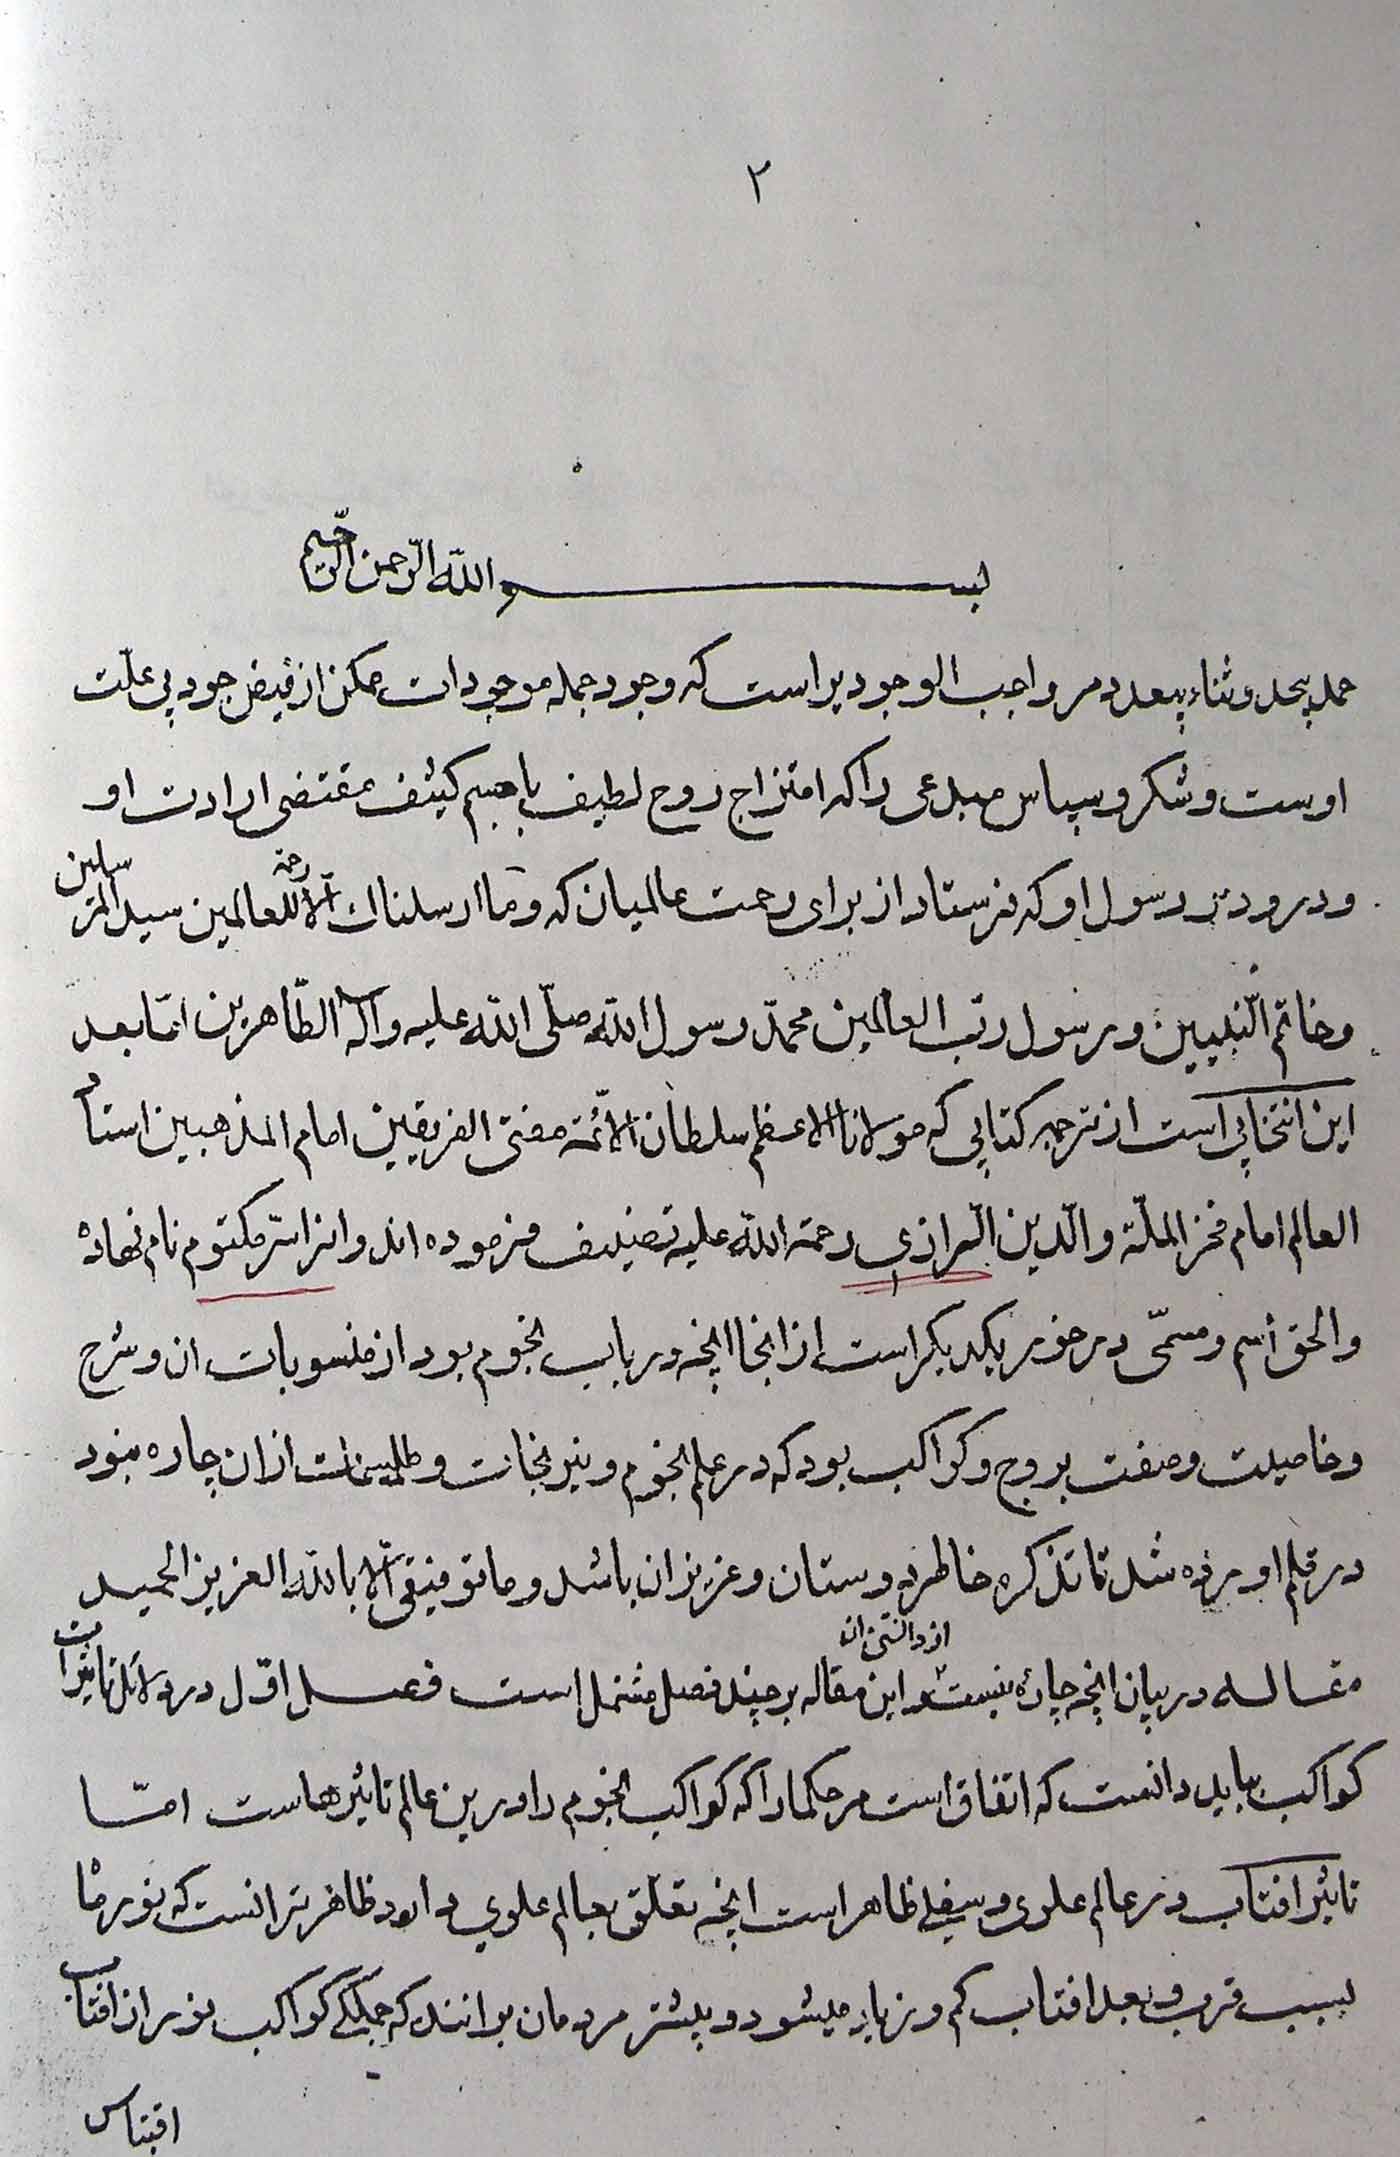 ۲
بسم الله الرحمن الرحیم
حمد بیحد و ثناء بیعدد مر واجب الوجودیراست که وجود جمله موجودات ممکن از فیض جود بی علّت
اوست و شکر و سپاس مبدعی را که امتزاج روح لطیف با جسم کثیف مقتضی ارادت او
و درود بر رسول او که فرستاد از برای رحمت عالمیان که و ما ارسلناك الّا رحمة للعالمین سید المرسلین
و خاتم النّبیین و رسول ربّ العالمین محمّد رسول الله صلّی الله علیه وآله الطّاهرین امّا بعد
این انتخابی است از ترجمه کتابی که مولانا الاعظم سلطان الائمّة مفتی الفریقین امام المذهبین استاد
العالم امام فخر الملّة والدّین الرازی رحمة الله علیه تصنیف فرموده اند و انرا سرّ مکتوم نام نهاده
والحق اسم و مسمّی در خور یکدیکر است از انجا انچه در باب نجوم بود از منسوبات ان و شرح
و خاصیت و صفت بروج و کواکب بود که در علم نجوم و نیرنجات و طلیسمات از ان چاره نبود
در قلم اورده شد تا تذکره خاطر دوستان و عزیزان باشد و ما توفیقی الّا بالله العزیز الحمید
مقاله در بیان انچه چاره نیست از دانستن ان و این مقاله بر چند فصل مشتمل است فصل اوّل در دلائل تاثیرات
کواکب بباید دانست که اتفاق است مر حکما را که کواکب نجوم را درین عالم تاثیرهاست امّا
تاثیر افتاب در عالم علوی و سفلی ظاهر است انچه تعلّق بعالم علوی دارد ظاهر تر انست که نور ماه
بسبب قرب و بعد افتاب کم و زیاد میشود و بیشتر مردمان برانند که جملکی کواکب نور از افتاب
اقتباس